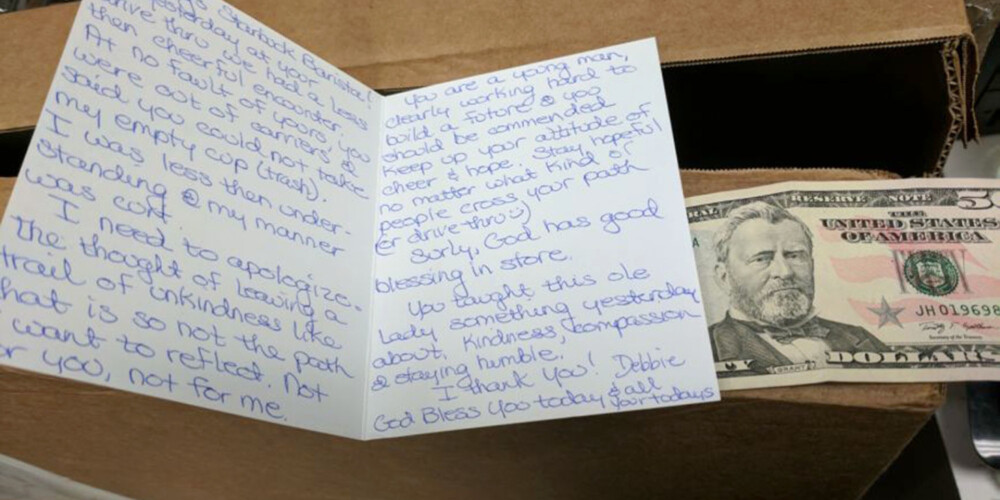 Starbuck Barista!
yesterday at your
drive thru we had a less
then cheerful encounter.
At no fault of yours, you
were out of carriers &
said you could not take
my empty cup (trash).
I was less then under-
standing & my manner
was curt.
I need to apologize-
the thought of leaving a
trail of unkindness like
that is so not the path
I want to reflect. Not
for you, not for me.
You are a young man,
clearly working hard to
build a future & you
should be commended
Keep up your attitude of
cheer & hope. Stay hopeful
no matter what kind of
people cross your path
(er drive thru :)
Surly, God has good
blessing in store.
You taught this ole
Lady something yesterday
about, kindness, compassion
& staying humble.
I thank you! Debbie
God Bless you today & all
your todays
RESERVE NOTE
THE
UNITED STATES
OF AMERICA
JH01969
GRANT
DOLLARS